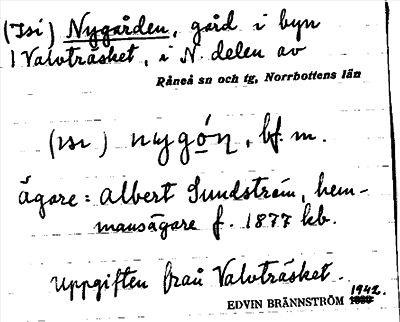 (Isi) Nygården, gård i byn
Valvträsket, i N. delen av
Råneå sn och tg, Norrbottens län
(isi) nygón, bf. m.
ägare: Albert Sundström, hem-
mansägare f. 1877 kb.
Uppgiften från Valvträsket.
1942.
EDVIN BRÄNNSTRÖM